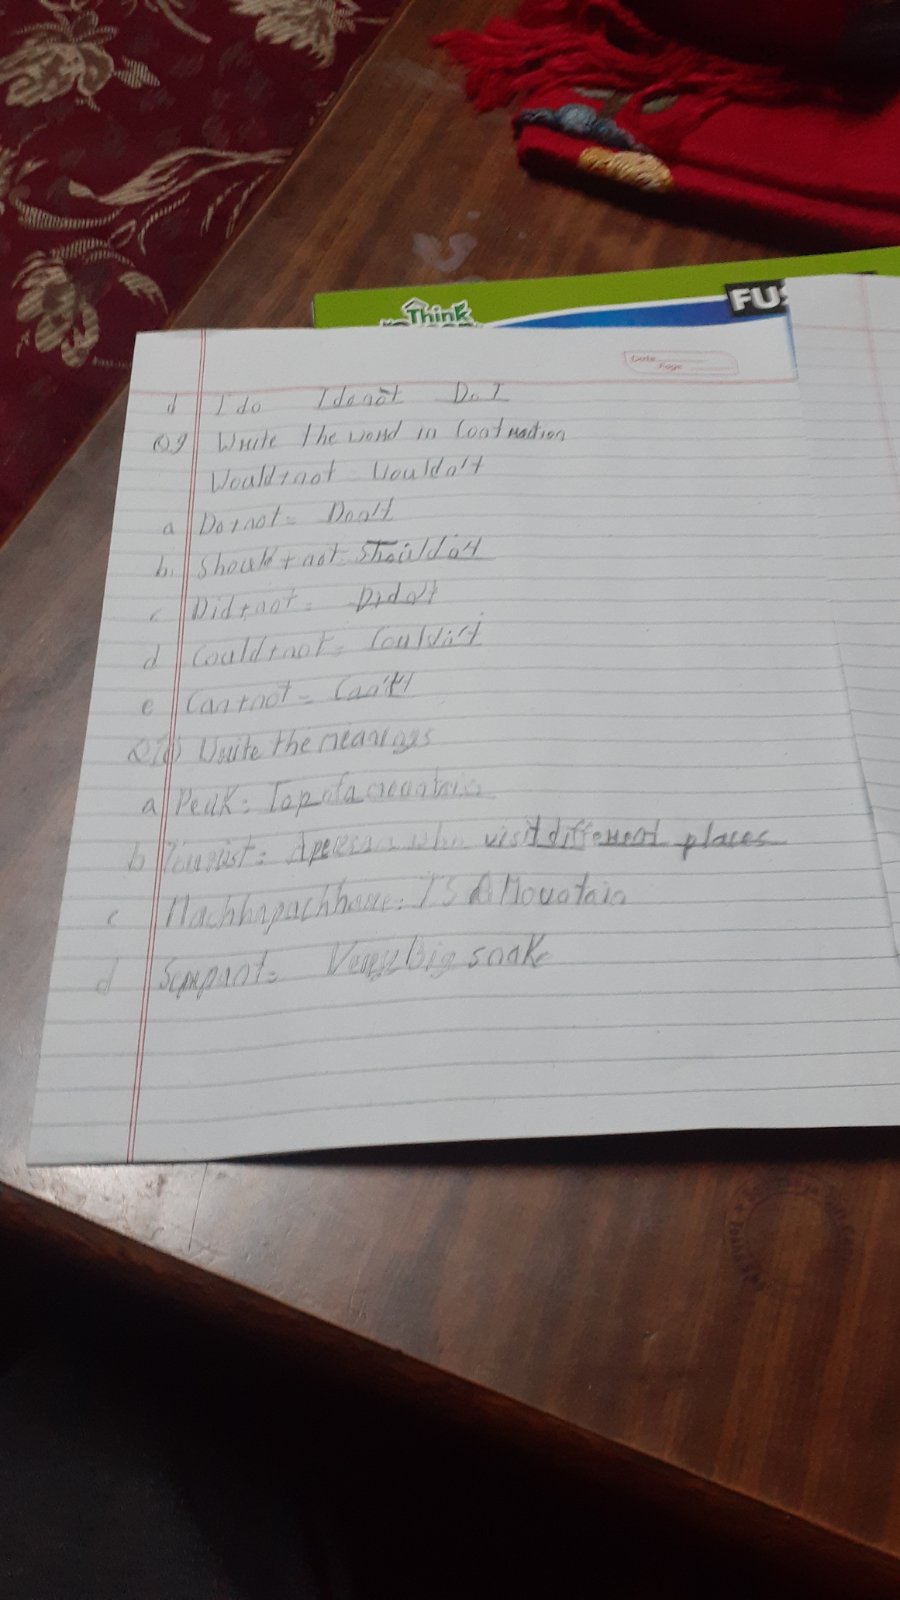 Think
FUS
Date
Page
d I do I do not Do I
Q9 Write the word in Contraction
Would+not Wouldn't
a Do+not= Don't
b. Should+not= Shouldn't
c Did+not= Didn't
d Could+not= Couldn't
e Can+not= Can't
Q10 Write the meanings
a Peak= Top of a mountain
b Tourist= A person who visit different places
c Machhapuchhare= IS A Mountain
d Serpant= Very Big snake